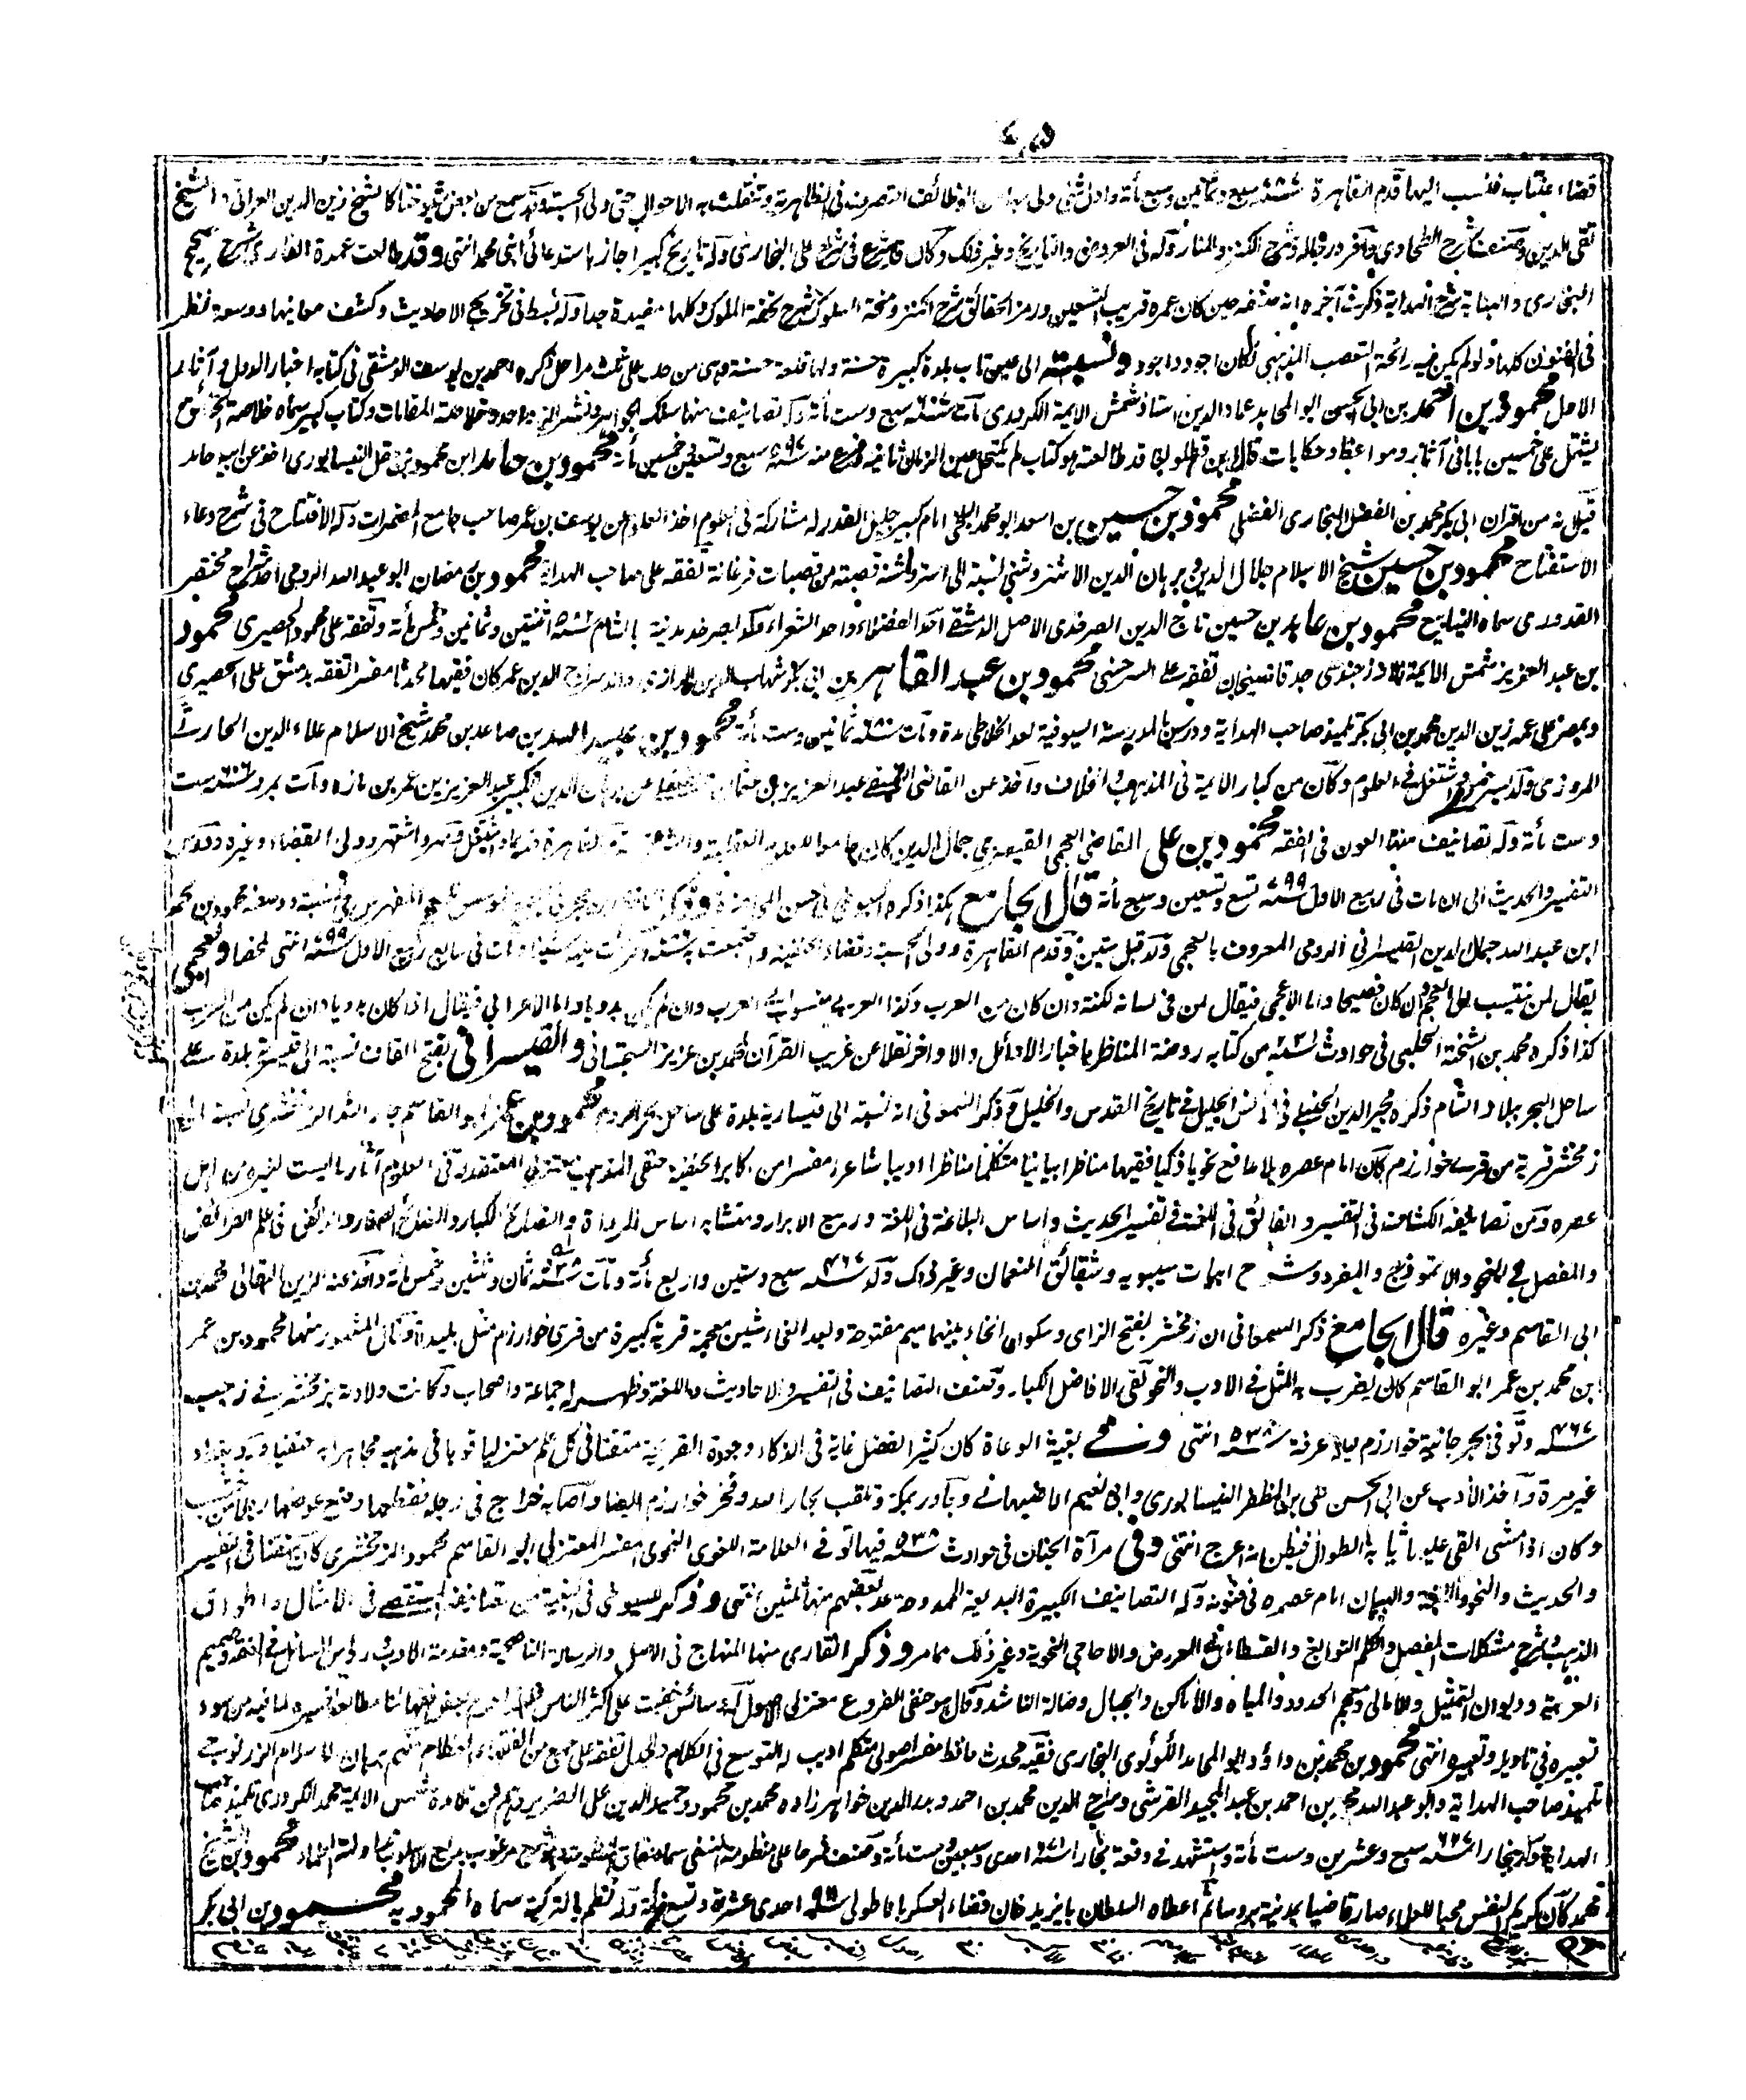 قضاء عنتاب فنسب اليها قدم القاهرة سنة سبع وثمانين وسبع مأة ولى الوظائف التصرف فى الظاهرية وتنقلت به الاحوال حتى ولى الحسبة وقد سمع من بعض شيوخنا كالشيخ زين الدين العراقى والشيخ
تقى الدين وصنف شرح الطحاوى ورجاله وشرح الكنز والمنار وله فى العروض والتاريخ وغير ذلك وكان قد شرع فى شرح على البخارى وله تاريخ كبير اجاز باستدعائى ابنى محمد انتهى وقد طالعت عمدة القارى شرح صحيح
البخارى والبناية شرح الهداية ذكر فى آخره انه صنفه حين كان عمره قريب التسعين ورمز الحقائق شرح الكنز ومنحة السلوك شرح تحفة الملوك وكلها مفيدة جدا وله بسط فى تخريج الاحاديث وكشف معانيها ووسعة نظر
فى الفنون كلها ولو لم يكن فيه رائحة التعصب المذهبى لكان اجود واجود ونسبته الى عين تاب بلدة كبيرة حسنة ولها قلعة حصنة وهى من حلب على ثلث مراحل ذكره احمد بن يوسف الدمشقى فى كتابه اخبار الدول وآثار
الاول محمود بن احمد بن ابى الحسن ابو المحامد عماد الدين استاذ شمس الايمة الكردرى مات سنة ٦٠٧ سبع وست مأة وله تصانيف منها سلك الجواهر ونشر الزواهر وخلاصة المقامات وكتاب كبير سماه خلاصة الحقائق
يشتمل على خمسين بابا فى آثار ومواعظ وحكايات قال ابن قطلوبغا قد طالعته هو كتاب لم يكتحل عين الزمان ثانيه فرغ منه سنة ٥٩٧ سبع وتسعين وخمس مأة محمود بن حامد ابن محمود بن معقل النيسابورى اخذ عن ابيه حامد
قيل انه من اقران ابى بكر محمد بن الفضل البخارى الفضلى محمود بن حسين بن اسعد ابو محمد البلخى امام كبير جليل القدر له مشاركة فى العلوم اخذ العلوم عن يوسف بن عمر صاحب جامع المضمرات وله الافتتاح فى شرح دعاء
الاستفتاح محمود بن حسين شيخ الاسلام جلال الدين بن برهان الدين الاشتروشنى نسبة الى استروشنة قصبة من قصبات فرغانة تفقه على صاحب الهداية محمود بن رمضان ابو عبد الله الرومى احد شراح مختصر
القدورى سماه الينابيع محمود بن عابد بن حسين تاج الدين الصرخدى الاصل الدمشقى احد الفضلاء واحد الشعراء مولده بصرخد مدينة بالشام سنة ٥٨٢ اثنتين وثمانين وخمس مأة وتفقه على محمود الحصيرى محمود
بن عبد العزيز شمس الايمة الاوزجندى جد قاضيخان تفقه على السرخسى محمود بن عبد القاهر بن ابى بكر شهاب الدين الرازى والد سراج الدين عمر كان فقيها محدثا مفسرا تفقه بدمشق على الحصيرى
وبمصر على عمه زين الدين محمد بن ابى بكر تلميذ صاحب الهداية ودرس بالمدرسة السيوفية بعد الخلاطى مدة ومات سنة ٦٨٠ ثمانين وست مأة محمود بن عبيد الله بن صاعد بن محمد شيخ الاسلام علاء الدين الحارثى
المروزى ولد بسرخس واشتغل فى العلوم وكان من كبار الايمة فى المذهب والخلاف واخذ عن القاضى عبد العزيز بن عثمان النسفى عن برهان الدين الكبير عبد العزيز بن عمر بن مازه ومات بمرو سنة ٦٠٦ ست
وست مأة وله تصانيف منها العون فى الفقه محمود بن على القاضى العجمى القيصرى جمال الدين كان جامعا للعلوم العقلية والنقلية قدم القاهرة قديما واشتغل ومهر واشتهر وولى القضاء وغيره ودرس
التفسير والحديث الى ان مات فى ربيع الاول سنة ٧٩٩ تسع وتسعين وسبع مأة قال الجامع هكذا ذكره السيوطى فى حسن المحاضرة وذكر الحافظ ابن حجر فى فى نسبه ووصفه محمود بن محمد
ابن عبد الله جمال الدين القيسرانى الرومى المعروف بالعجمى ولد قبل ستين وقدم القاهرة وولى الحسبة وقضاء الحنفية واجتمعت به مات فى سابع ربيع الاول سنة ٧٩٩ انتهى ملخصا والعجمى
يقال لمن ينتسب الى العجم وان كان فصيحا واما الاعجمى فيقال لمن فى لسانه لكنة وان كان من العرب وكذا العربى منسوب الى العرب وان لم يكن بدويا واما الاعرابى فيقال اذا كان بدويا وان لم يكن من العرب
كذا ذكره محمد بن الشحنة الحلبى فى حوادث سنة من كتابه روضة المناظر باخبار الاوائل والاواخر نقلا عن غريب القرآن لمحمد بن عزيز السجستانى والقيسرانى بفتح القاف نسبة الى قيسرية بلدة على
ساحل البحر ببلاد الشام ذكره مجير الدين الحنبلى فى الانس الجليل فى تاريخ القدس والخليل وذكر السمعانى انه نسبة الى قيسارية بلدة على ساحل بحر الروم محمود بن عمر ابو القاسم جار الله الزمخشرى نسبة الى
زمخشر قرية من قرى خوارزم كان امام عصره بلا مدافع نحويا ذكيا فقيها مناظرا بيانيا متكلما مناظرا اديبا شاعرا مفسرا من اكابر الحنفية حنفى المذهب معتزلى المعتقد وله فى العلوم آثار ليست لغيره من اهل
عصره ومن تصانيفه الكشاف فى التفسير والفائق فى اللغة فى تفسير الحديث واساس البلاغة فى اللغة وربيع الابرار ومتشابه اسامى الرواة والنصائح الكبار والنصائح الصغار والرائض فى علم الفرائض
والمفصل فى النحو والانموذج والمفرد وشرح ابيات سيبويه وشقائق النعمان وغير ذلك ولد سنة ٤٦٧ سبع وستين واربع مأة ومات سنة ٥٣٨ ثمان وثلثين وخمس مأة واخذ عنه الزين البقالى محمد بن
ابى القاسم وغيره قال الجامع ذكر السمعانى ان زمخشر بفتح الزاى وسكون الخاء بينهما ميم مفتوحة وبعد الخاء شين معجمة قرية كبيرة من قرى خوارزم مثل بليدة وكان المشهور منها محمود بن عمر
ابن محمد بن عمر ابو القاسم كان يضرب به المثل فى الادب والنحو لقى الافاضل الكبار وصنف التصانيف فى التفسير والاحاديث واللغة وظهر له جماعة واصحاب وكانت ولادته بزمخشر فى رجب
سنة ٤٦٧ وتوفى بجرجانية خوارزم ليلة عرفة سنة ٥٣٨ انتهى وفى بغية الوعاة كان كثير الفضل غاية فى الذكاء وجودة القريحة متقنا فى كل علم معتزليا قويا فى مذهبه مجاهرا به حنفيا ورد بغداد
غير مرة واخذ الادب عن ابى الحسن على بن المظفر النيسابورى وابى نعيم الاصبهانى وجاور بمكة وتلقب بجار الله وفخر خوارزم ايضا واصابه خراج فى رجله فقطعها وصنع عوضها رجلا من خشب
وكان اذا مشى القى عليها ثيابه الطوال فيظن انه اعرج انتهى وفى مرآة الجنان فى حوادث سنة ٥٣٨ فيها توفى العلامة اللغوى النحوى المفسر المعتزلى ابو القاسم محمود الزمخشرى كان متقنا فى التفسير
والحديث والنحو واللغة والبيان امام عصره فى فنونه وله التصانيف الكبيرة البديعة الممدوحة عد بعضهم منها ثلثين انتهى وذكر السيوطى فى البغية من تصانيفه المستقصى فى الامثال واطواق
الذهب وشرح مشكلات المفصل والكلم النوابغ والقسطاس فى العروض والاحاجى النحوية وغير ذلك مما مر وذكر القارى منها المنهاج فى الاصول والرسالة الناصحة ومقدمة الادب ورؤس المسائل فى الفقه وصميم
العربية وديوان التمثيل والامالى ومعجم الحدود والمياه والاماكن والجبال وضالة الناشد وقال هو حنفى الفروع معتزلى الاصول له دسائس خفيت على اكثر الناس فلهذا حرم بعض فقهائنا مطالعة تفسيره لما فيه من سوء
تعبيره فى تاويله وتعبيره انتهى محمود بن محمد بن داؤد ابو المحامد اللؤلؤى البخارى فقيه محدث حافظ مفسر اصولى متكلم اديب له التوسع فى الكلام والجدل تفقه على جمع من الفقهاء العظام منهم برهان الاسلام الزرنوجى
تلميذ صاحب الهداية وابو عبد الله محمد بن احمد بن عبد المجيد القرشى وسراج الدين محمد بن احمد وبدر الدين خواهر زاده محمد بن محمود وحميد الدين على الضرير وهم من تلامذة شمس الايمة محمد الكردرى تلميذ صاحب
الهداية ولد ببخارا سنة ٦٢٧ سبع وعشرين وست مأة واستشهد فى وقعة بخارا سنة ٦٧١ احدى وسبعين وست مأة وصنف شرحا على منظومة النسفى سماه حقائق المنظومة محمود بن الشيخ
محمد كان كريم النفس محبا للعلماء صار قاضيا بمدينة بروسا ثم اعطاه السلطان بايزيد خان قضاء العسكر باناطولى سنة ٩١١ احدى عشرة وتسع مأة وله نظم بالتركية سماه المحمودية محمود بن ابى بكر